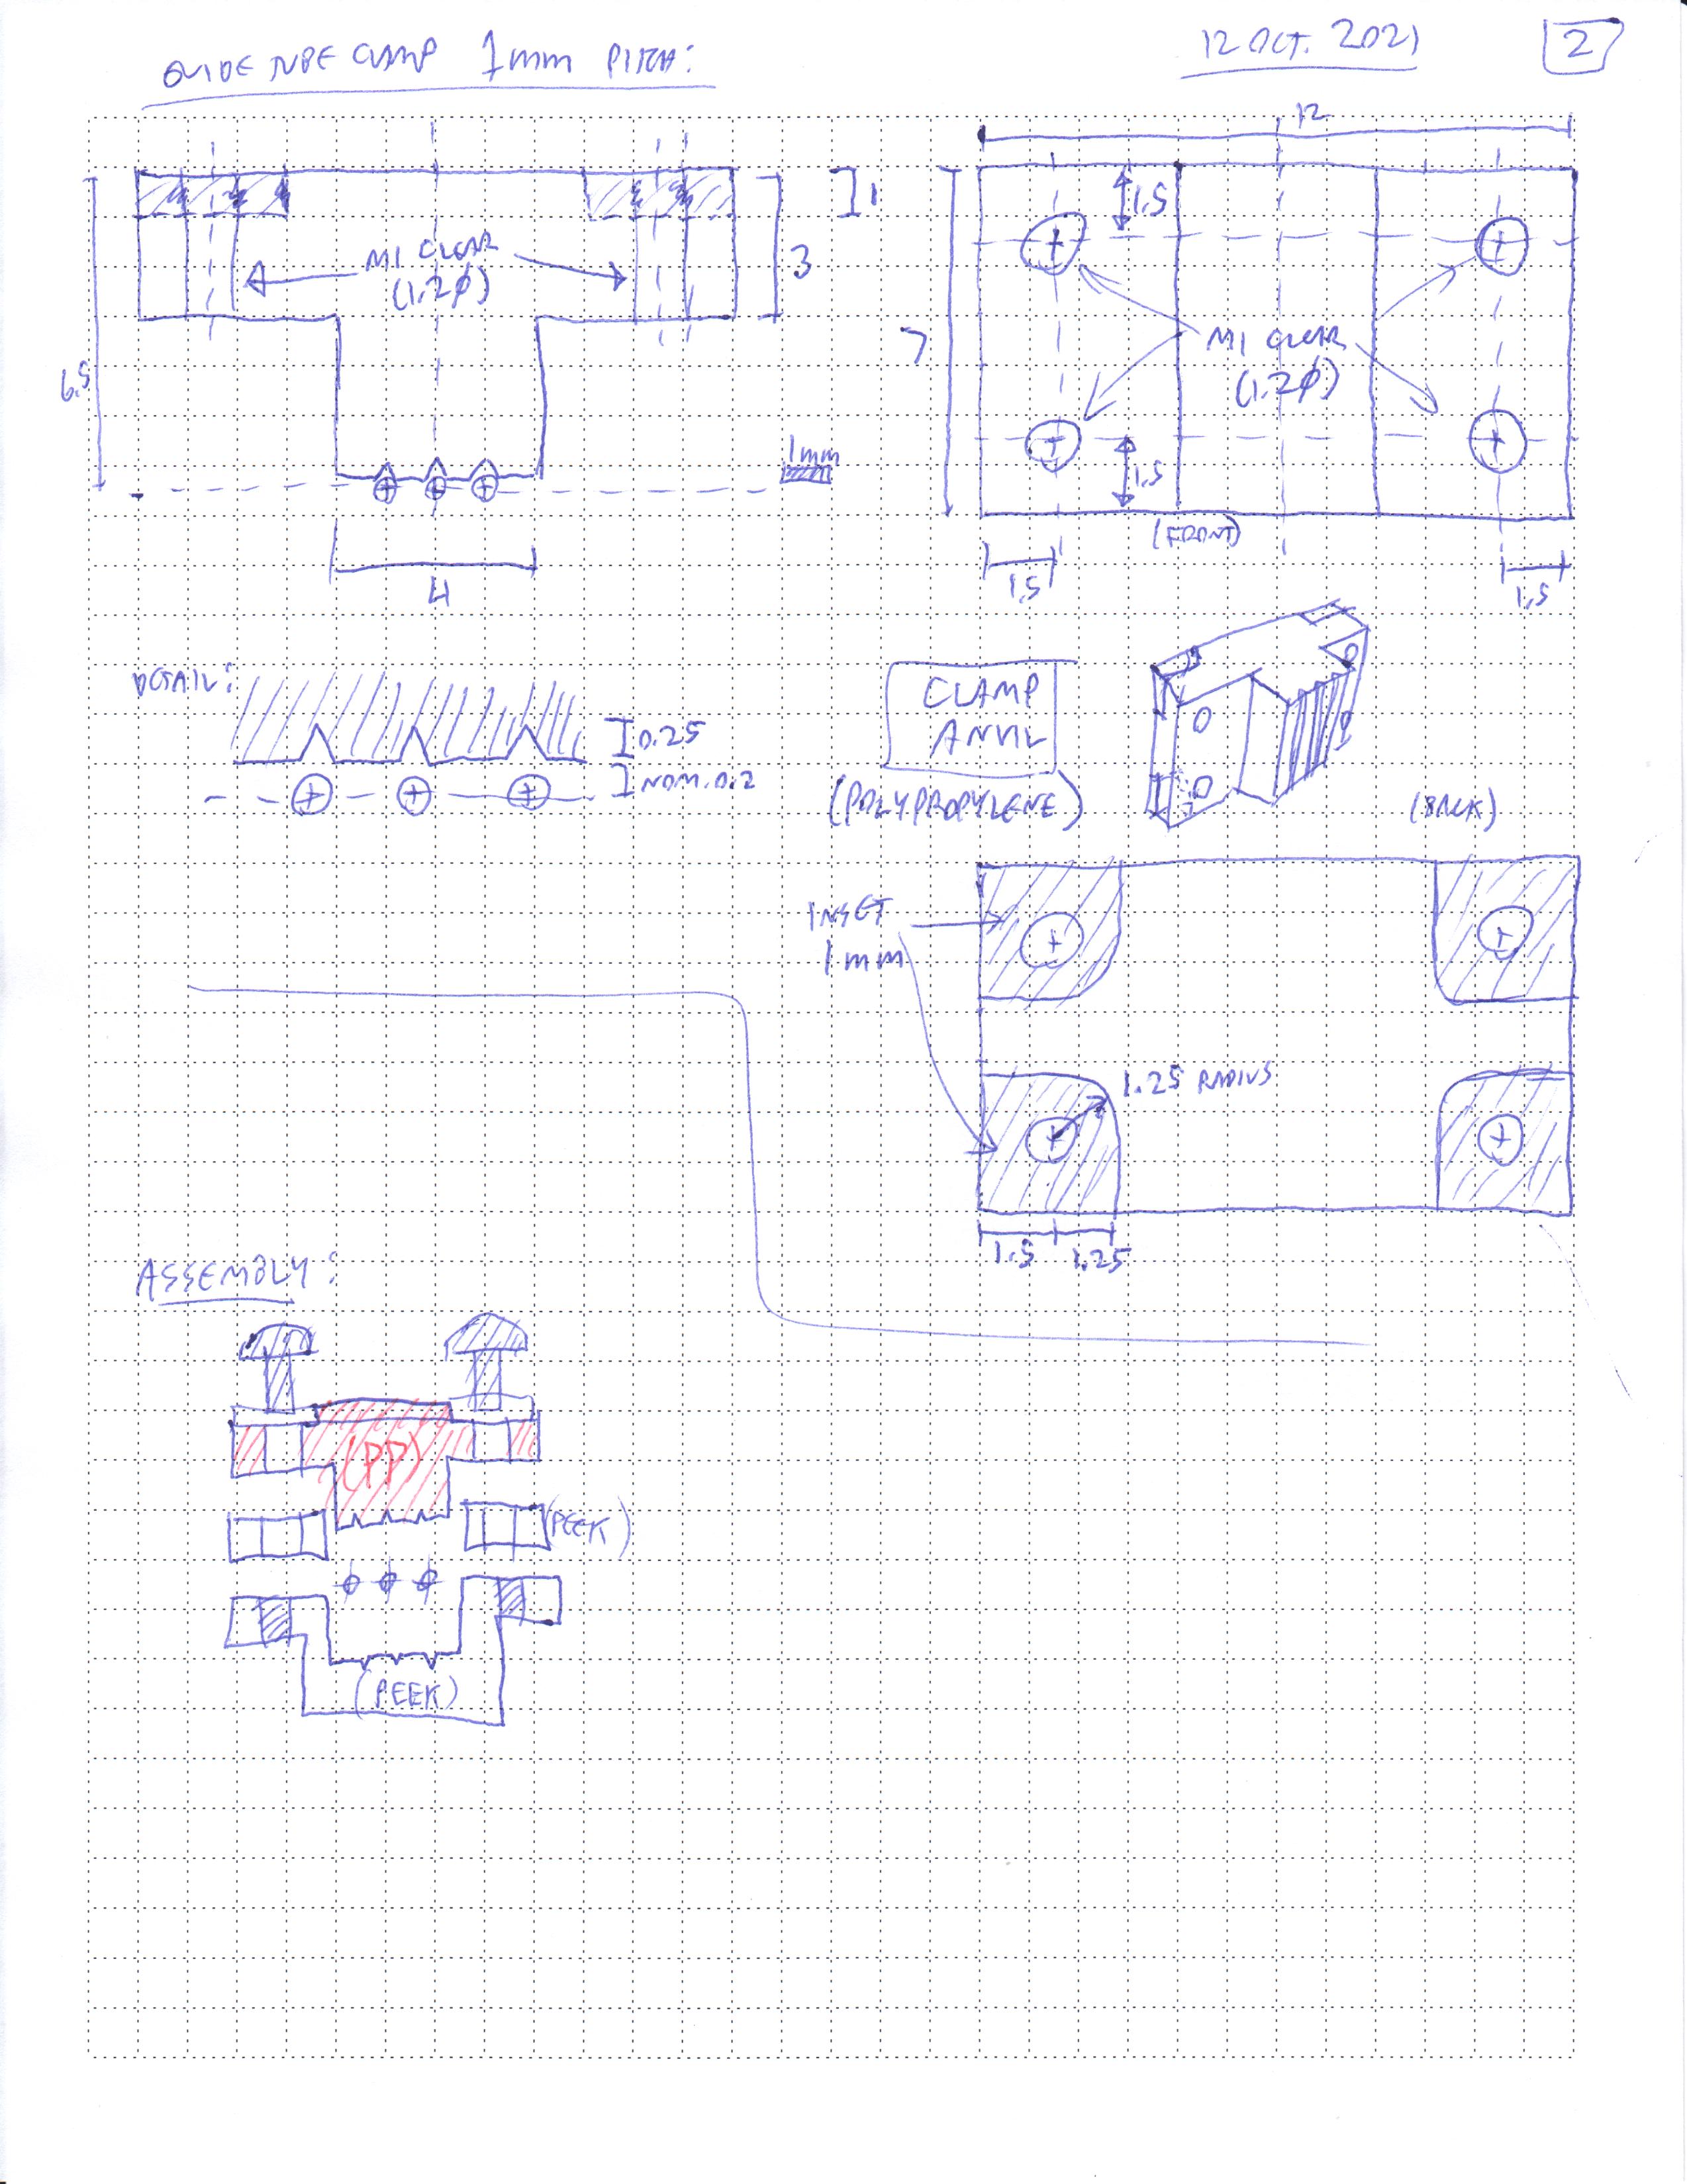 GUIDE TUBE CLAMP 1mm PITCH:
12 OCT. 2021
2
12
1
1.5
M1 CLEAR
(1.2⌀)
3
6.5
7
M1 CLEAR
(1.2⌀)
1mm
1.5
(FRONT)
4
1.5
1.5
DETAIL:
0.25
NOM. 0.2
CLAMP
ANVIL
(POLYPROPYLENE)
(BACK)
INSET
1mm
1.25 RADIUS
1.5
1.25
ASSEMBLY:
(PP)
(PEEK)
(PEEK)